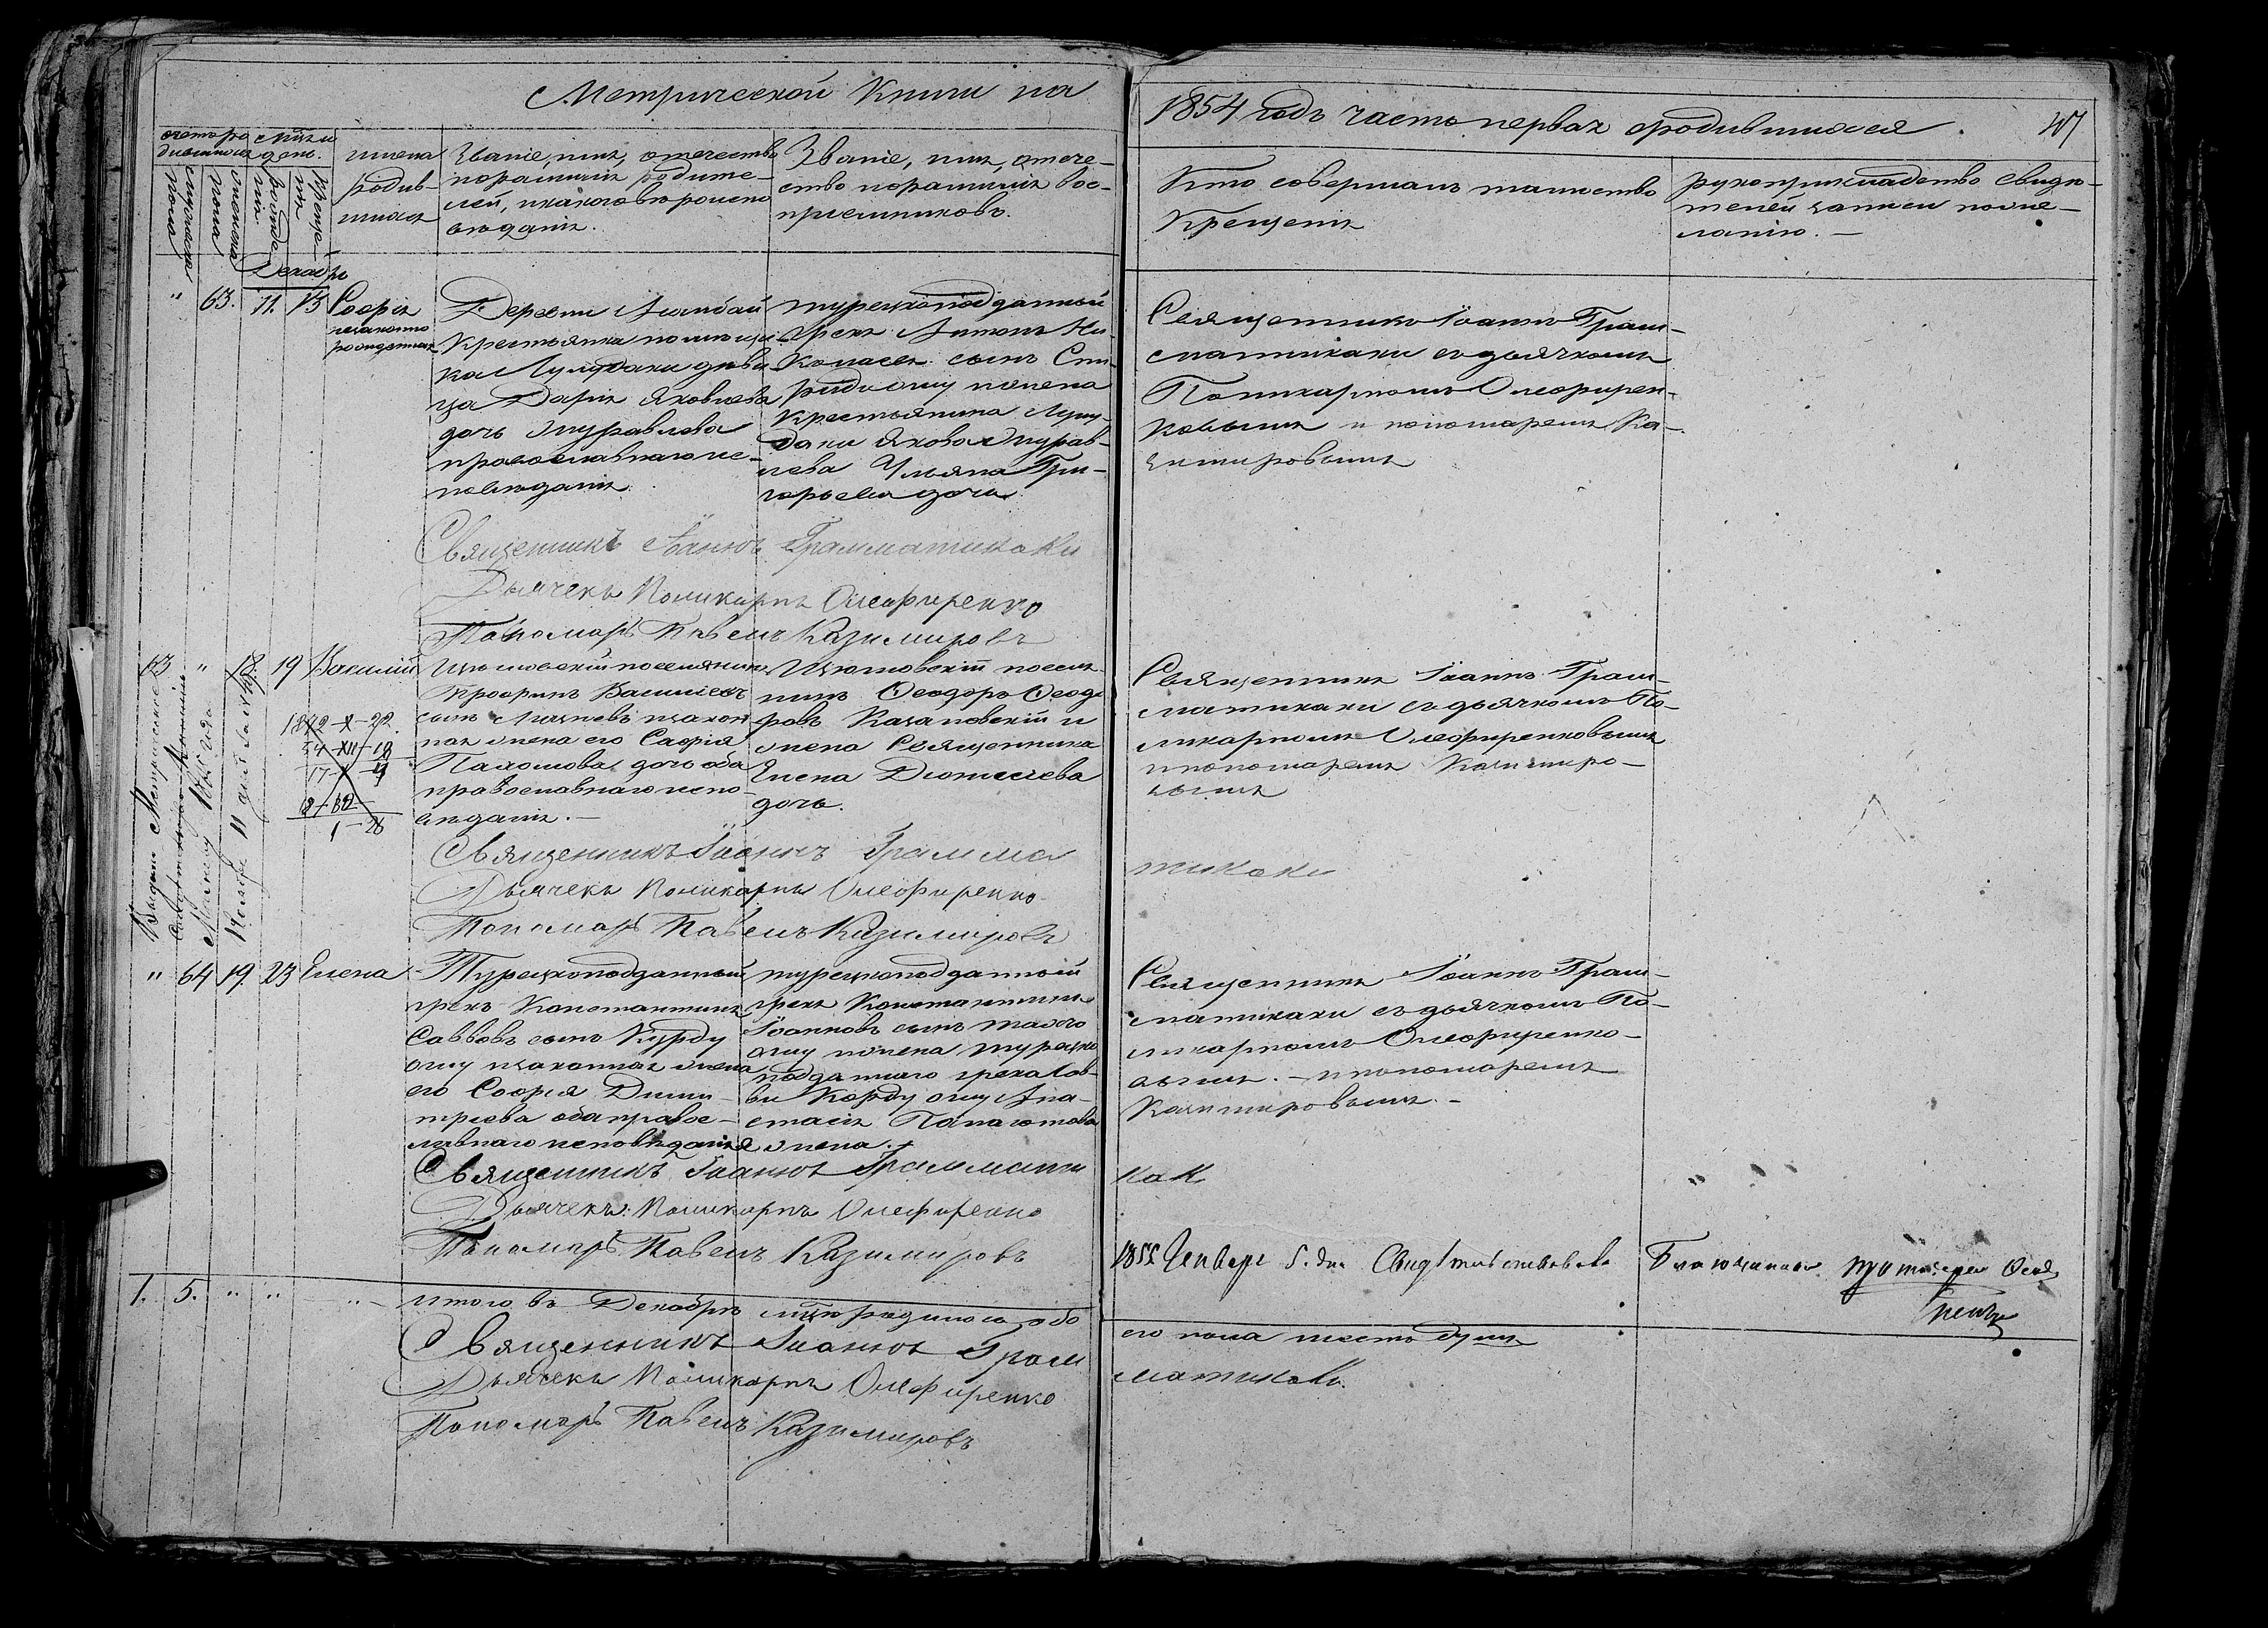 Метрической Книги на
1854 годъ часть первая о родившихся.
имена
родив-
шихся
Званіе, имя, отечество
и фамилія родите-
лей, и какого вѣроиспо
вѣданія.
Званіе, имя, отече-
ство и фамилія вос-
пріемниковъ.
Кто совершалъ таинство
Крещенія
рукоприкладство свидѣ-
телей записи по же-
ланію.
Декабрь
" 63. 11. 13 Софія
незаконно
рожденная
Деревни
Крестьянка помѣщи
ка дев
ца Дарія Яковлева
дочь Журавлева
православнаго ис-
повѣданія.
турецкоподданный
грекъ Антонъ Ни-
колаевъ сынъ Спи-
ридиоглу и жена
крестьянина
Якова Журав-
лева Ульяна Гри-
горьева дочь.
Священникъ Іоаннъ Грам-
матикаки съ дьячкомъ
Поликарпомъ Олефирен-
ковымъ и пономаремъ Ка-
зимировымъ
Священникъ Іоаннъ Грамматикаки
Дьячекъ Поликарпъ Олефиренко
Пономарь Павелъ Казимировъ
63 " 18. 19 Василій
поселянинъ
Трофимъ Васильевъ
сынъ и закон
ная жена его Софія
Пахомова дочь оба
православнаго испо-
вѣданія.
поселя
нинъ Феодоръ Феодо
ровъ Казановскій и
жена Священника
Елена Діонисіева
дочь.
Священникъ Іоаннъ Грам-
матикаки съ дьячкомъ По-
ликарпомъ Олефиренковымъ
и пономаремъ Казимиро-
вымъ
Священникъ Іоаннъ Грамма
тикаки
Дьячекъ Поликарпъ Олефиренко
Пономарь Павелъ Казимировъ
" 64 19. 23 Елена
Турецкоподданный
грекъ Константинъ
Саввовъ сынъ Курду
оглу и законная жена
его Софія Дими-
тріева оба право-
славнаго исповѣданія
турецкоподданный
грекъ Константинъ
Іоанновъ сынъ
оглу и жена турецко
подданного грека Сав-
вы Корду оглу Ана-
стасія Панаіотова
жена.
Священникъ Іоаннъ Грам-
матикаки съ дьячкомъ По-
ликарпомъ Олефиренко-
вымъ. и пономаремъ
Казимировымъ.
Священникъ Іоаннъ Граммати
как
Дьячекъ Поликарпъ Олефиренко
Пономарь Павелъ Казимировъ
1855 Генваря 5. дня Свидѣтельствовалъ Благочинный протоіерей
1. 5. " " " итого въ Декабрѣ мцѣ родилось обо
его пола шесть душъ
Священникъ Іоаннъ Грам
матикаки.
Дьячекъ Поликарпъ Олефиренко
Пономарь Павелъ Казимировъ